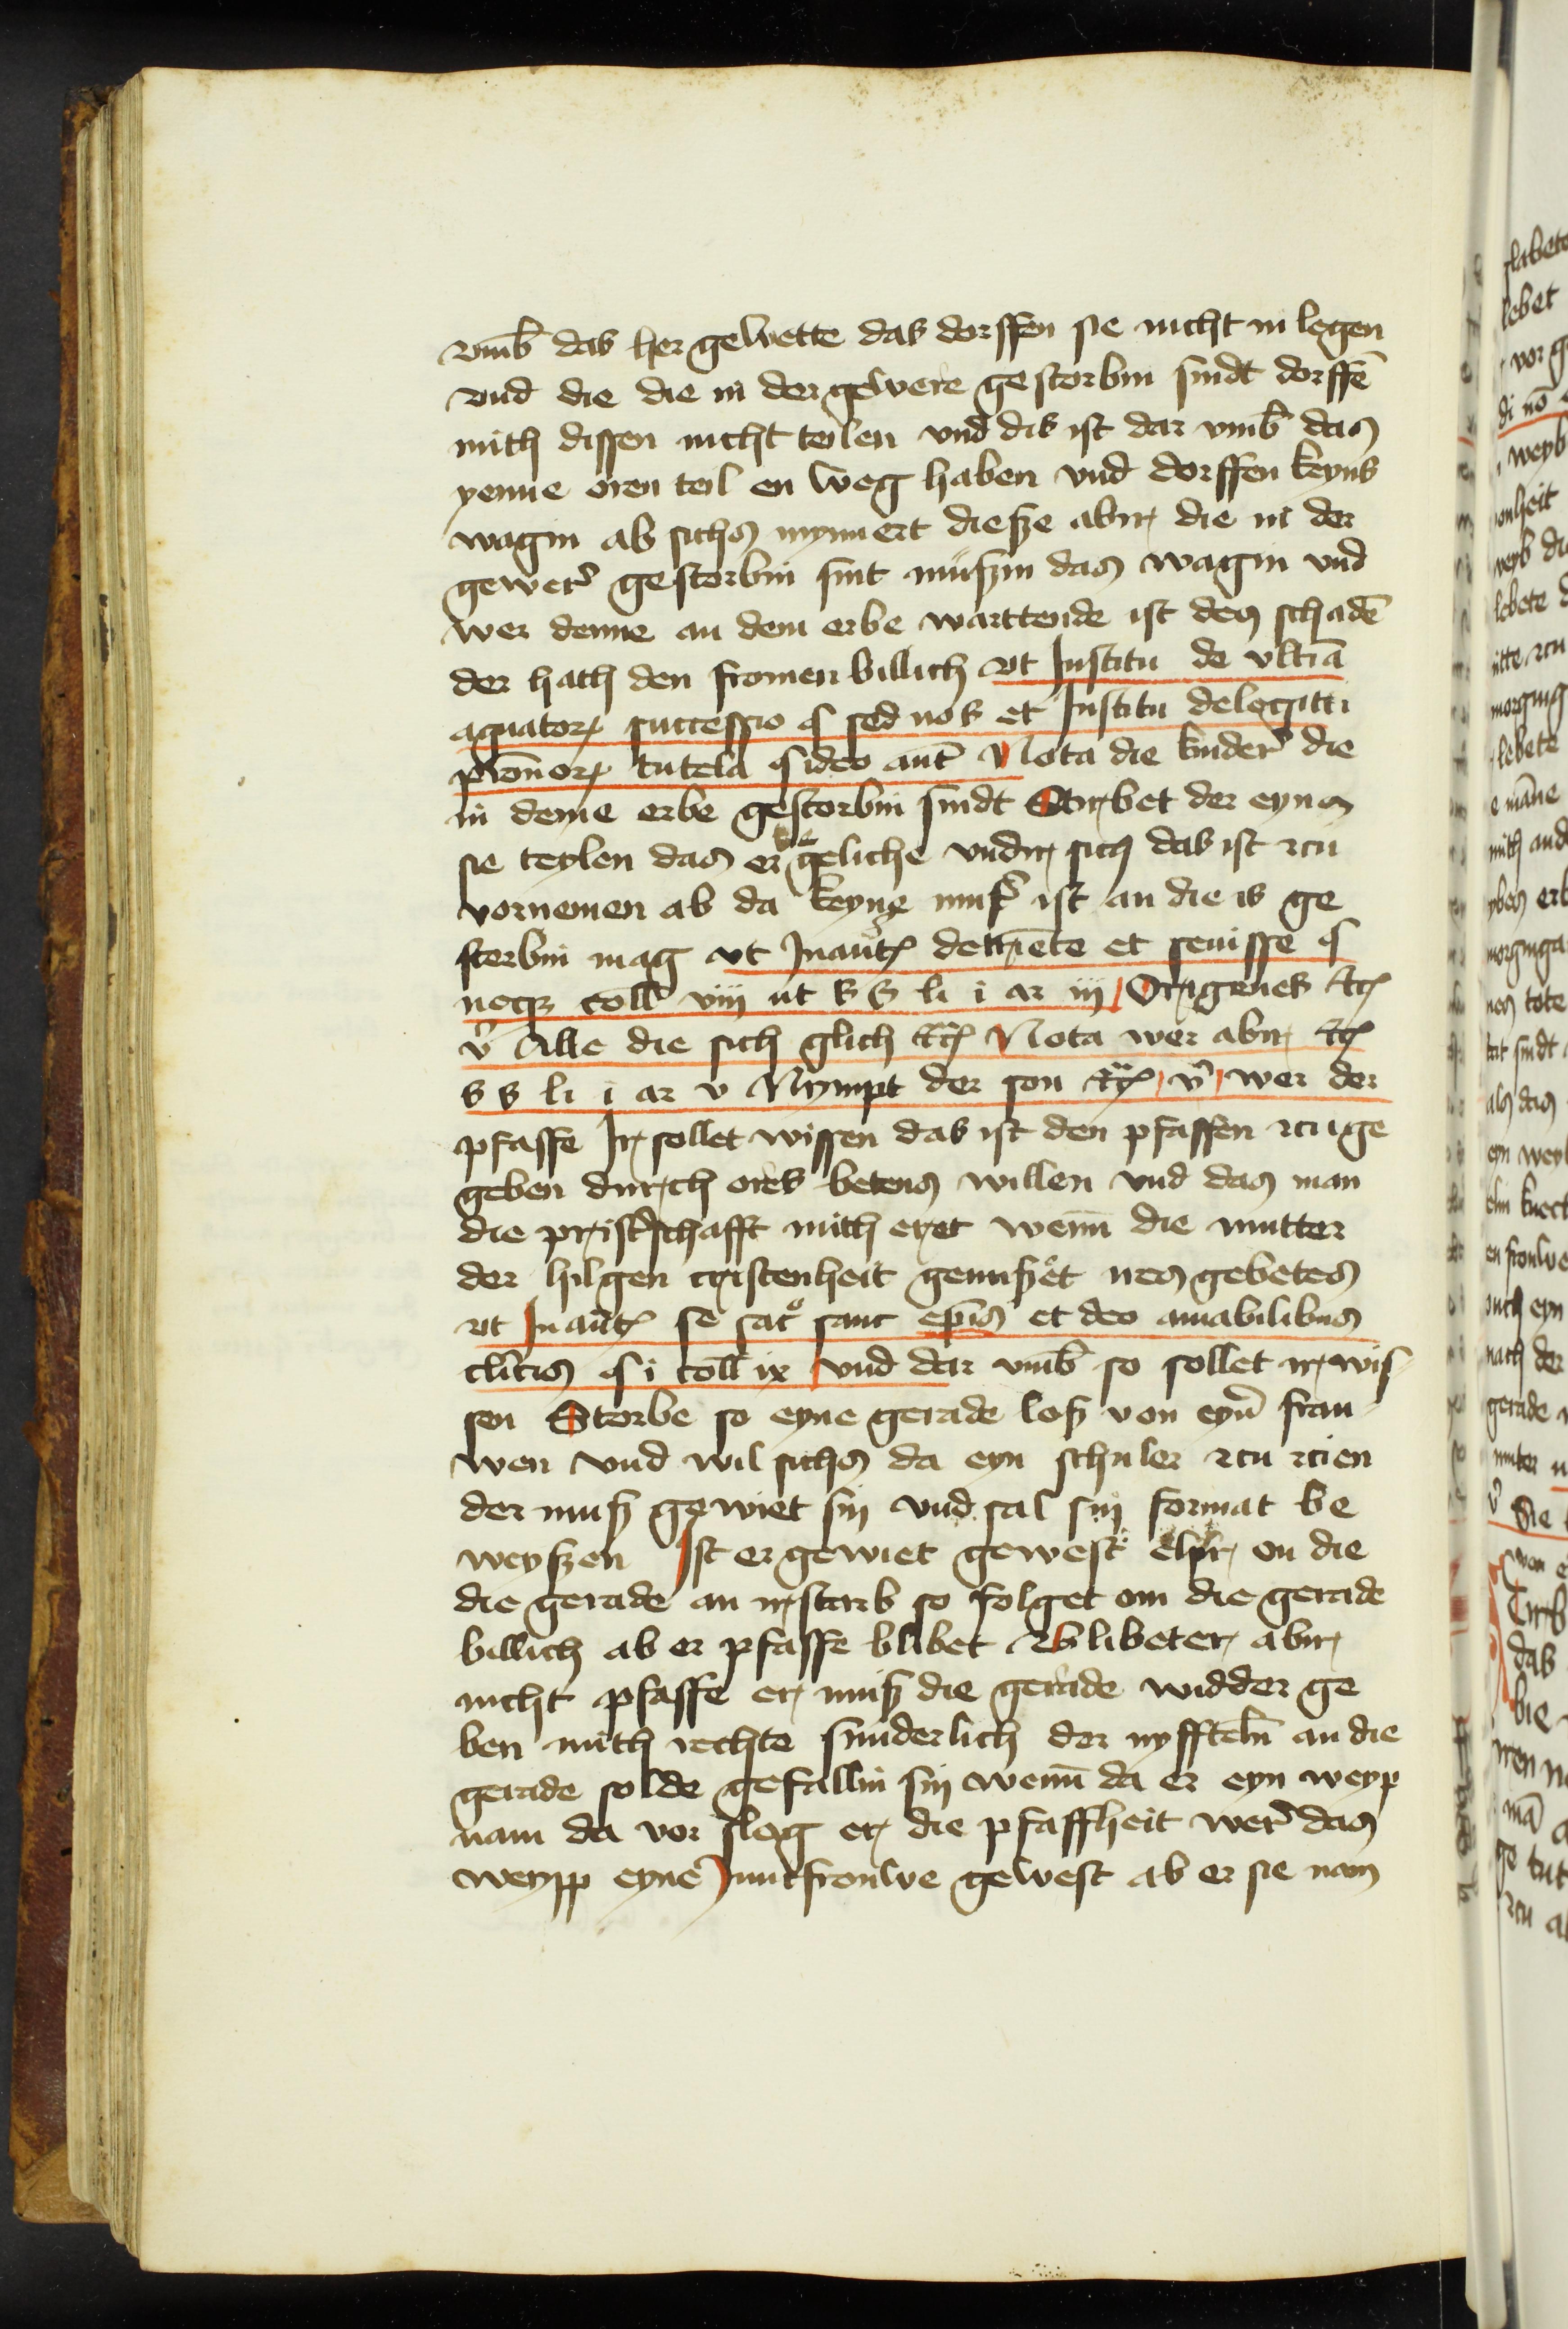 vmb̄ das her gewette das dorffen sie nicht in legen
vnd die die in der gewere gestorbin sindt dorffē
mith dissen nicht teilen vnd dis ist dar vmb̄ das
yenne oren teil en weg haben vnd dorffen keyns
wagin ab sichs mynnert diesze abir die in der
gewer̄ gestorbin sint muszin das wagin vnd
wer denne an dem erbe warttende ist des schadē
der hath den fromen billich vt Institu de vltīa
agnator successio § sed nos et Institu delegitti
pronor tutela § ideo aut̄ Nota die kinder die
in deme erbe gestorbin sindt Stirbet der eyns
sie teylen das erbe geliche vndir sich das ist zcu
vornemen ab da keyne mut̄ ist an die is ge
sterbin mag vt Inaut̄ detriēte et semisse §
neq; coll̄ viii ut s s li i ar iij Origenes etc
v̄ Alle die sich glich etc Nota wer abir etc
s s li i ar v Nympt der son etc v̄ wer der
pfaffe Ir sollet wissen das ist den pfaffen zcu ge
geben durch ores betens willen vnd das man
die pristschafft mith eret wenn die mutter
der hilgen cristenheit genuszet nes gebetes
vt Inaut̄ se sac̊ sanc ep̄is et deo amabilibus
clīcis § i coll̄ ix vnd dar vmb̄ so sollet ir wis
sen Storbe so eyne gerade losz von eyn̄ frau
wen vnd wil sichs da eyn schuler zcu zcien
der musz gewiet sin vnd sal sin format be
weyszen Ist er gewiet gewest on die
die gerade an irstarb so folget om die gerade
billich ab er pfaffe blibet Blibeter abir
nicht pfaffe er musz die gerade widder ge
ben mith rechte sunderlich der nyffteln̄ an die
gerade solde gefallin sin wenn da er eyn weyp
nam da vor slog er die pfaffheit wer̄ das
weypp eyne Juncfrouwe gewest ab er sie nam